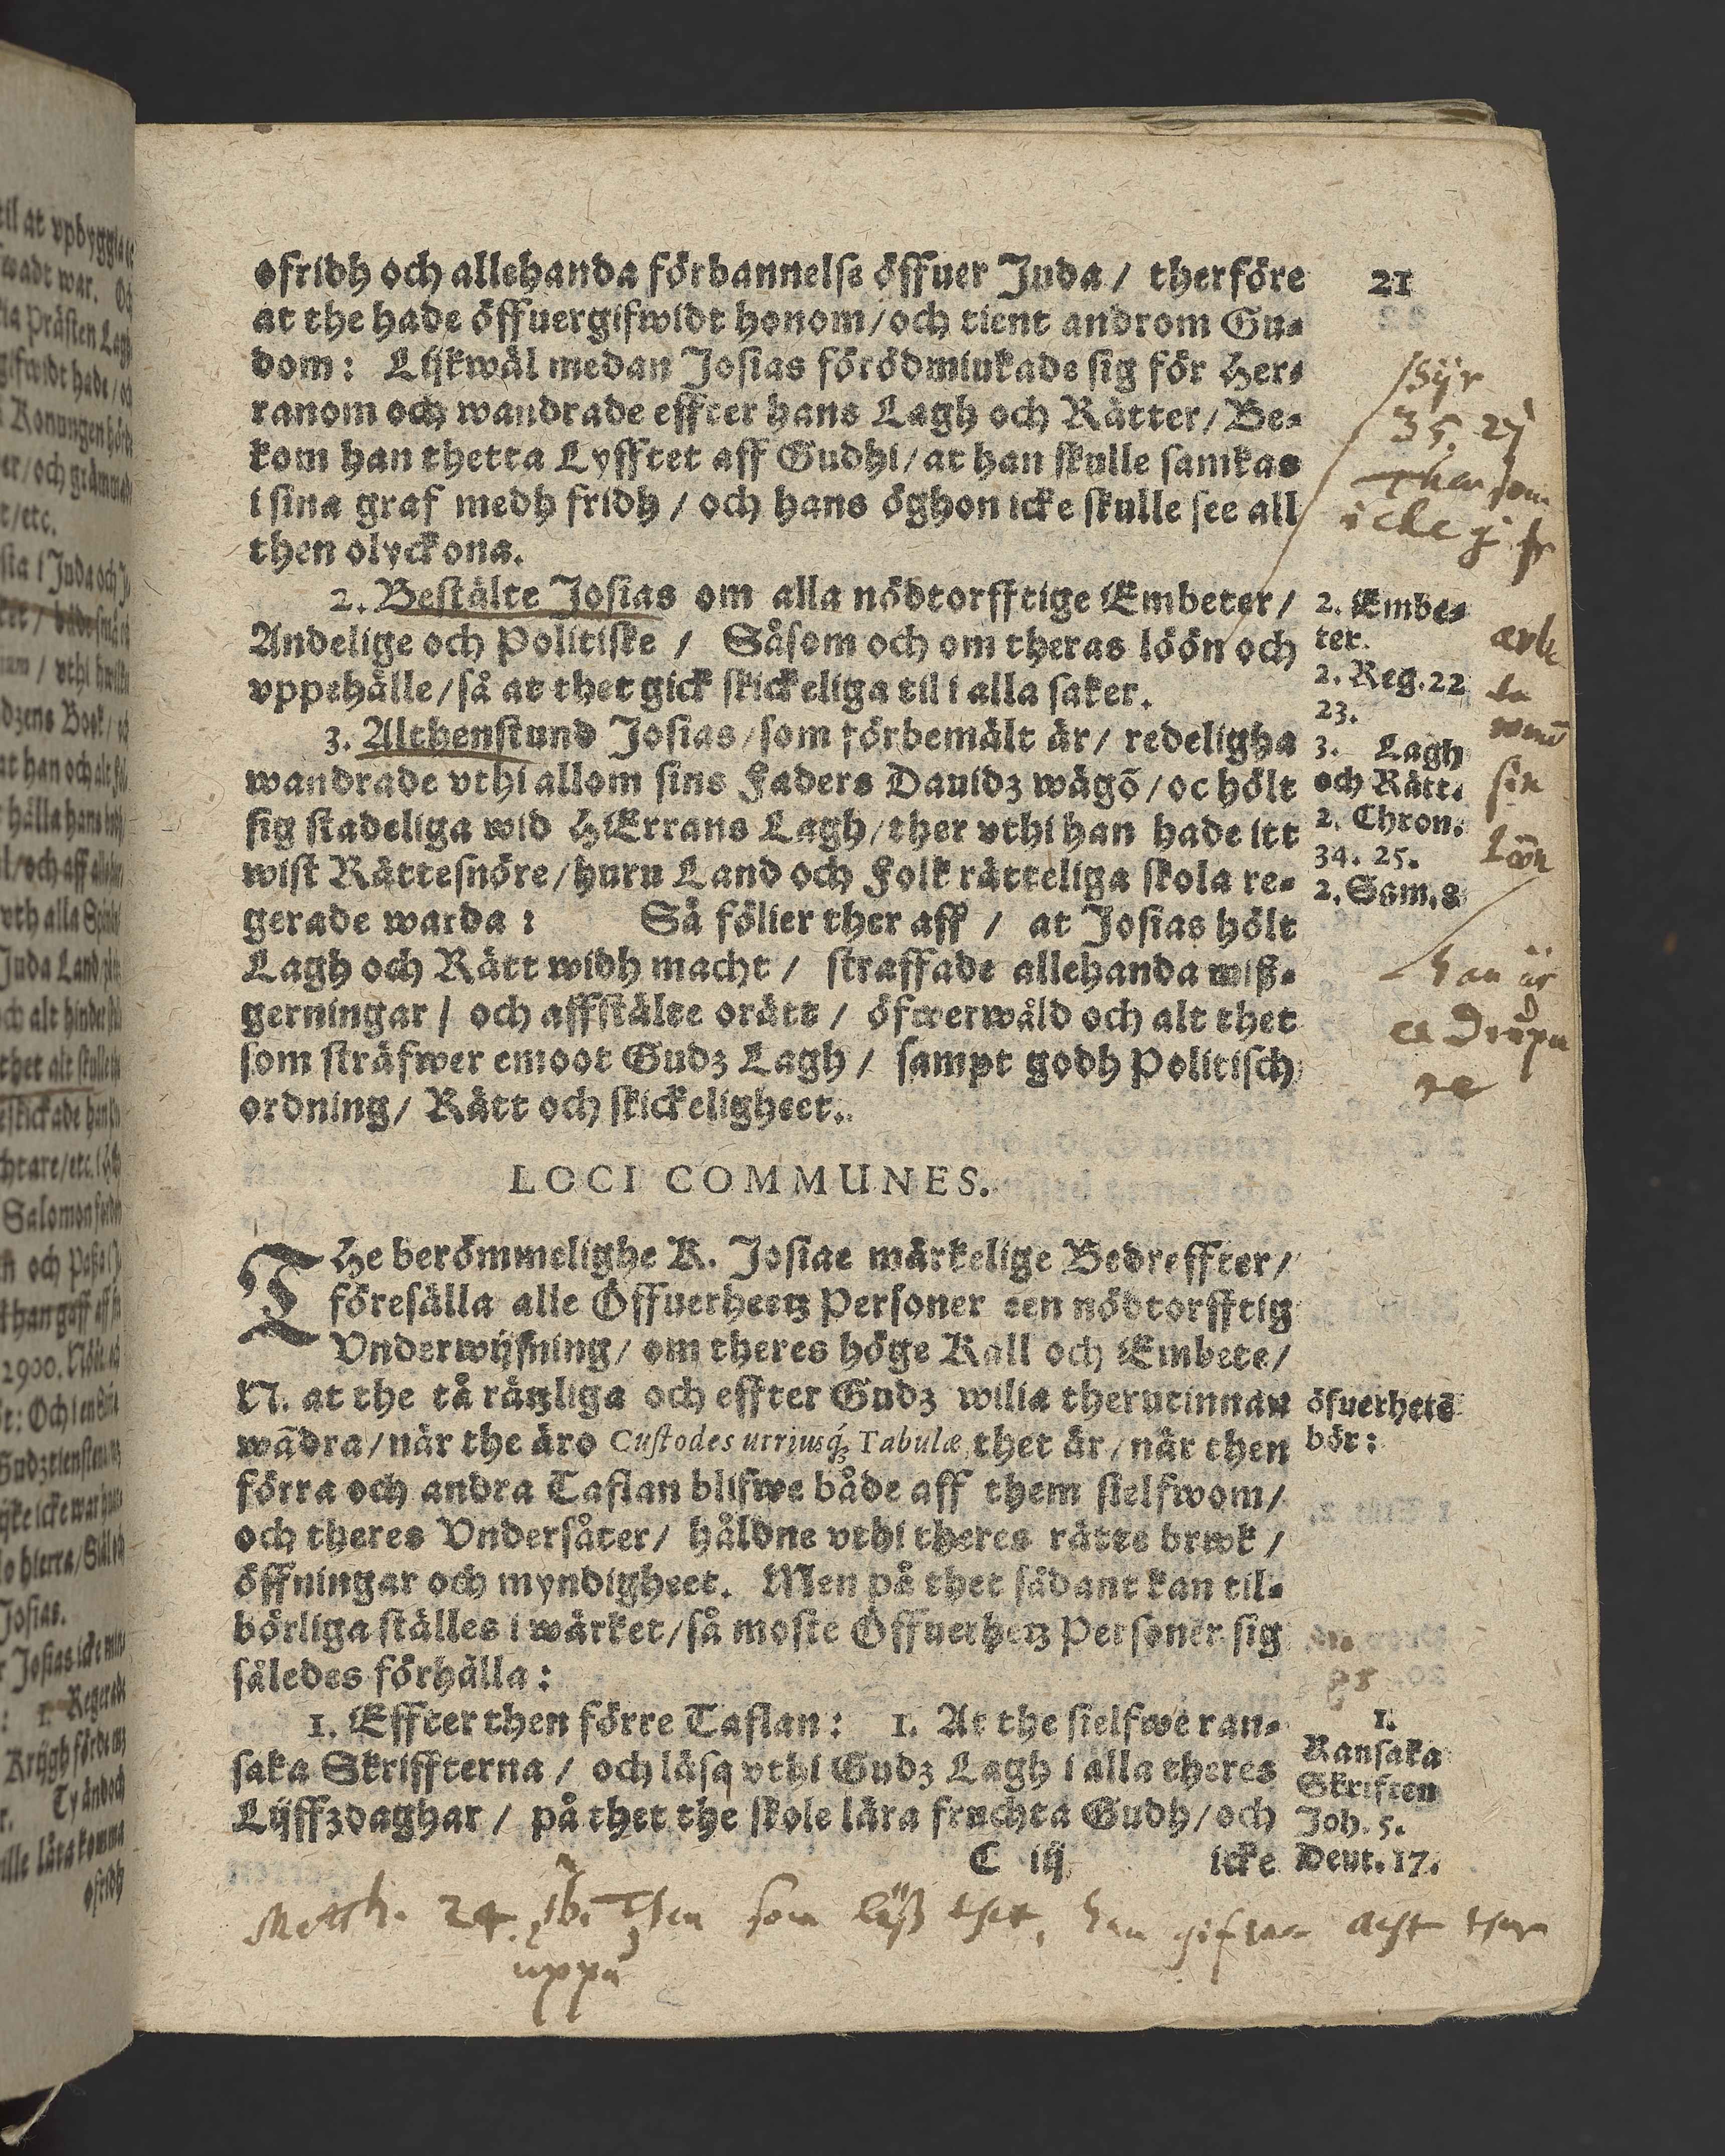 21
ofridh och allehanda förbannelse öffuer Juda / therföre
at the hade öffuergifwidt honom / och tient androm Gu-
dom : Lijkwäl medan Josias förödmiukade sig för Her-
ranom och wandrade effter hans Lagh och Rätter / Be-
kom han thetta Lyfftet aff Gudhi / at han skulle samkas
i sina graf medh fridh / och hans öghon icke skulle see all
then olyckona.
2. Bestälte Josias om alla nödtorfftige Embeter /
Andelige och Politiske / Såsom och om theras löön och
vppehälle / så at thet gick skickeliga til i alla saker.
3. Althenstund Josias / som förbemält är / redeligha
wandrade vthi allom sins Faders Dauidz wägõ / oc hölt
sig stadeliga wid HErrans Lagh / ther vthi han hade itt
wist Rättesnöre / huru Land och Folk rätteliga skola re-
gerade warda : Så fölier ther aff / at Josias hölt
Lagh och Rätt widh macht / straffade allehanda miß-
gerningar / och affstälte orätt / öfwerwåld och alt thet
som sträfwer emoot Gudz Lagh / sampt godh Politisch
ordning / Rätt och skickeligheet.
2. Embe-
ter.
2. Reg. 22
23.
3. Lagh
och Rätt.
2. Chron.
34. 25.
2. Sam. 8
Syr
35. 27
then som
icke gifr
arbe
ta
sin
Löön
han är
LOCI COMMUNES.
THe berömmelighe K. Josiae märkelige Bedreffter /
föresälla alle Öffuerheetz Personer een nödtorfftig
Vnderwijsning / om theres höge Kall och Embete /
N. at the tå rätzliga och effter Gudz wilia therutinnan
wãdra / när the äro Custodes utriusq́; Tabulæ, thet är / när then
förra och andra Taflan blifwe både aff them sielfwom /
och theres Vndersåter / håldne vthi theres rätte brwk /
öffningar och myndigheet. Men på thet sådant kan til-
börliga ställes i wärket / så moste Öffuerhetz Personer sig
således förhålla :
1. Effter then förre Taflan : 1. At the sielfwe ran-
saka Skriffterna / och läsa vthi Gudz Lagh i alla theres
Lijffzdaghar / på thet the skole lära fruchta Gudh / och
C iij icke
öfuerhetẽ
bör :
1.
Ransaka
Skriften
Joh. 5.
Deut. 17.
Matth. 24. Then som läß thet, han gifwe acht ther
uppå